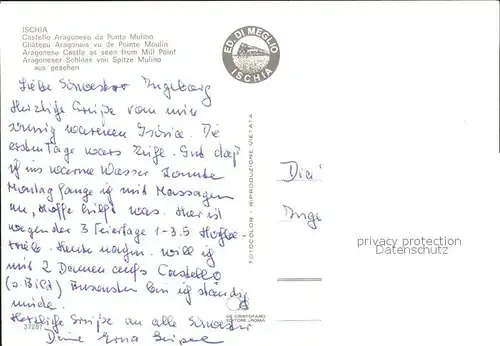 ISCHIA
Castello Aragonese da Punta Mulino
Château Aragonais vu de Pointe Moulin
Aragonese Castle as seen from Mill Point
Aragoneser Schloss von Spitze Mulino
aus gesehen
ED. DI MEGLIO
ISCHIA
Liebe Schwester Ingeborg
Herzliche Grüße vom nun
warmen Ischia. Die
ersten Tage wars kühl. Gut daß
ich ins warme Wasser konnte
Montag fange ich mit Massagen
an, hoffe hilft was. Hier ist
wegen der 3 Feiertage 1-3.5
Heute will ich
mit 2 Damen aufs Castello
(s. Bild) Ansonsten bin ich ständig
müde.
Herzliche Grüße an alle Schwestern
Deine Erna
FOTOCOLOR - RIPRODUZIONE VIETATA
privacy protection
Datenschutz
DE CRISTOFARO
EDITORE - ROMA
37287